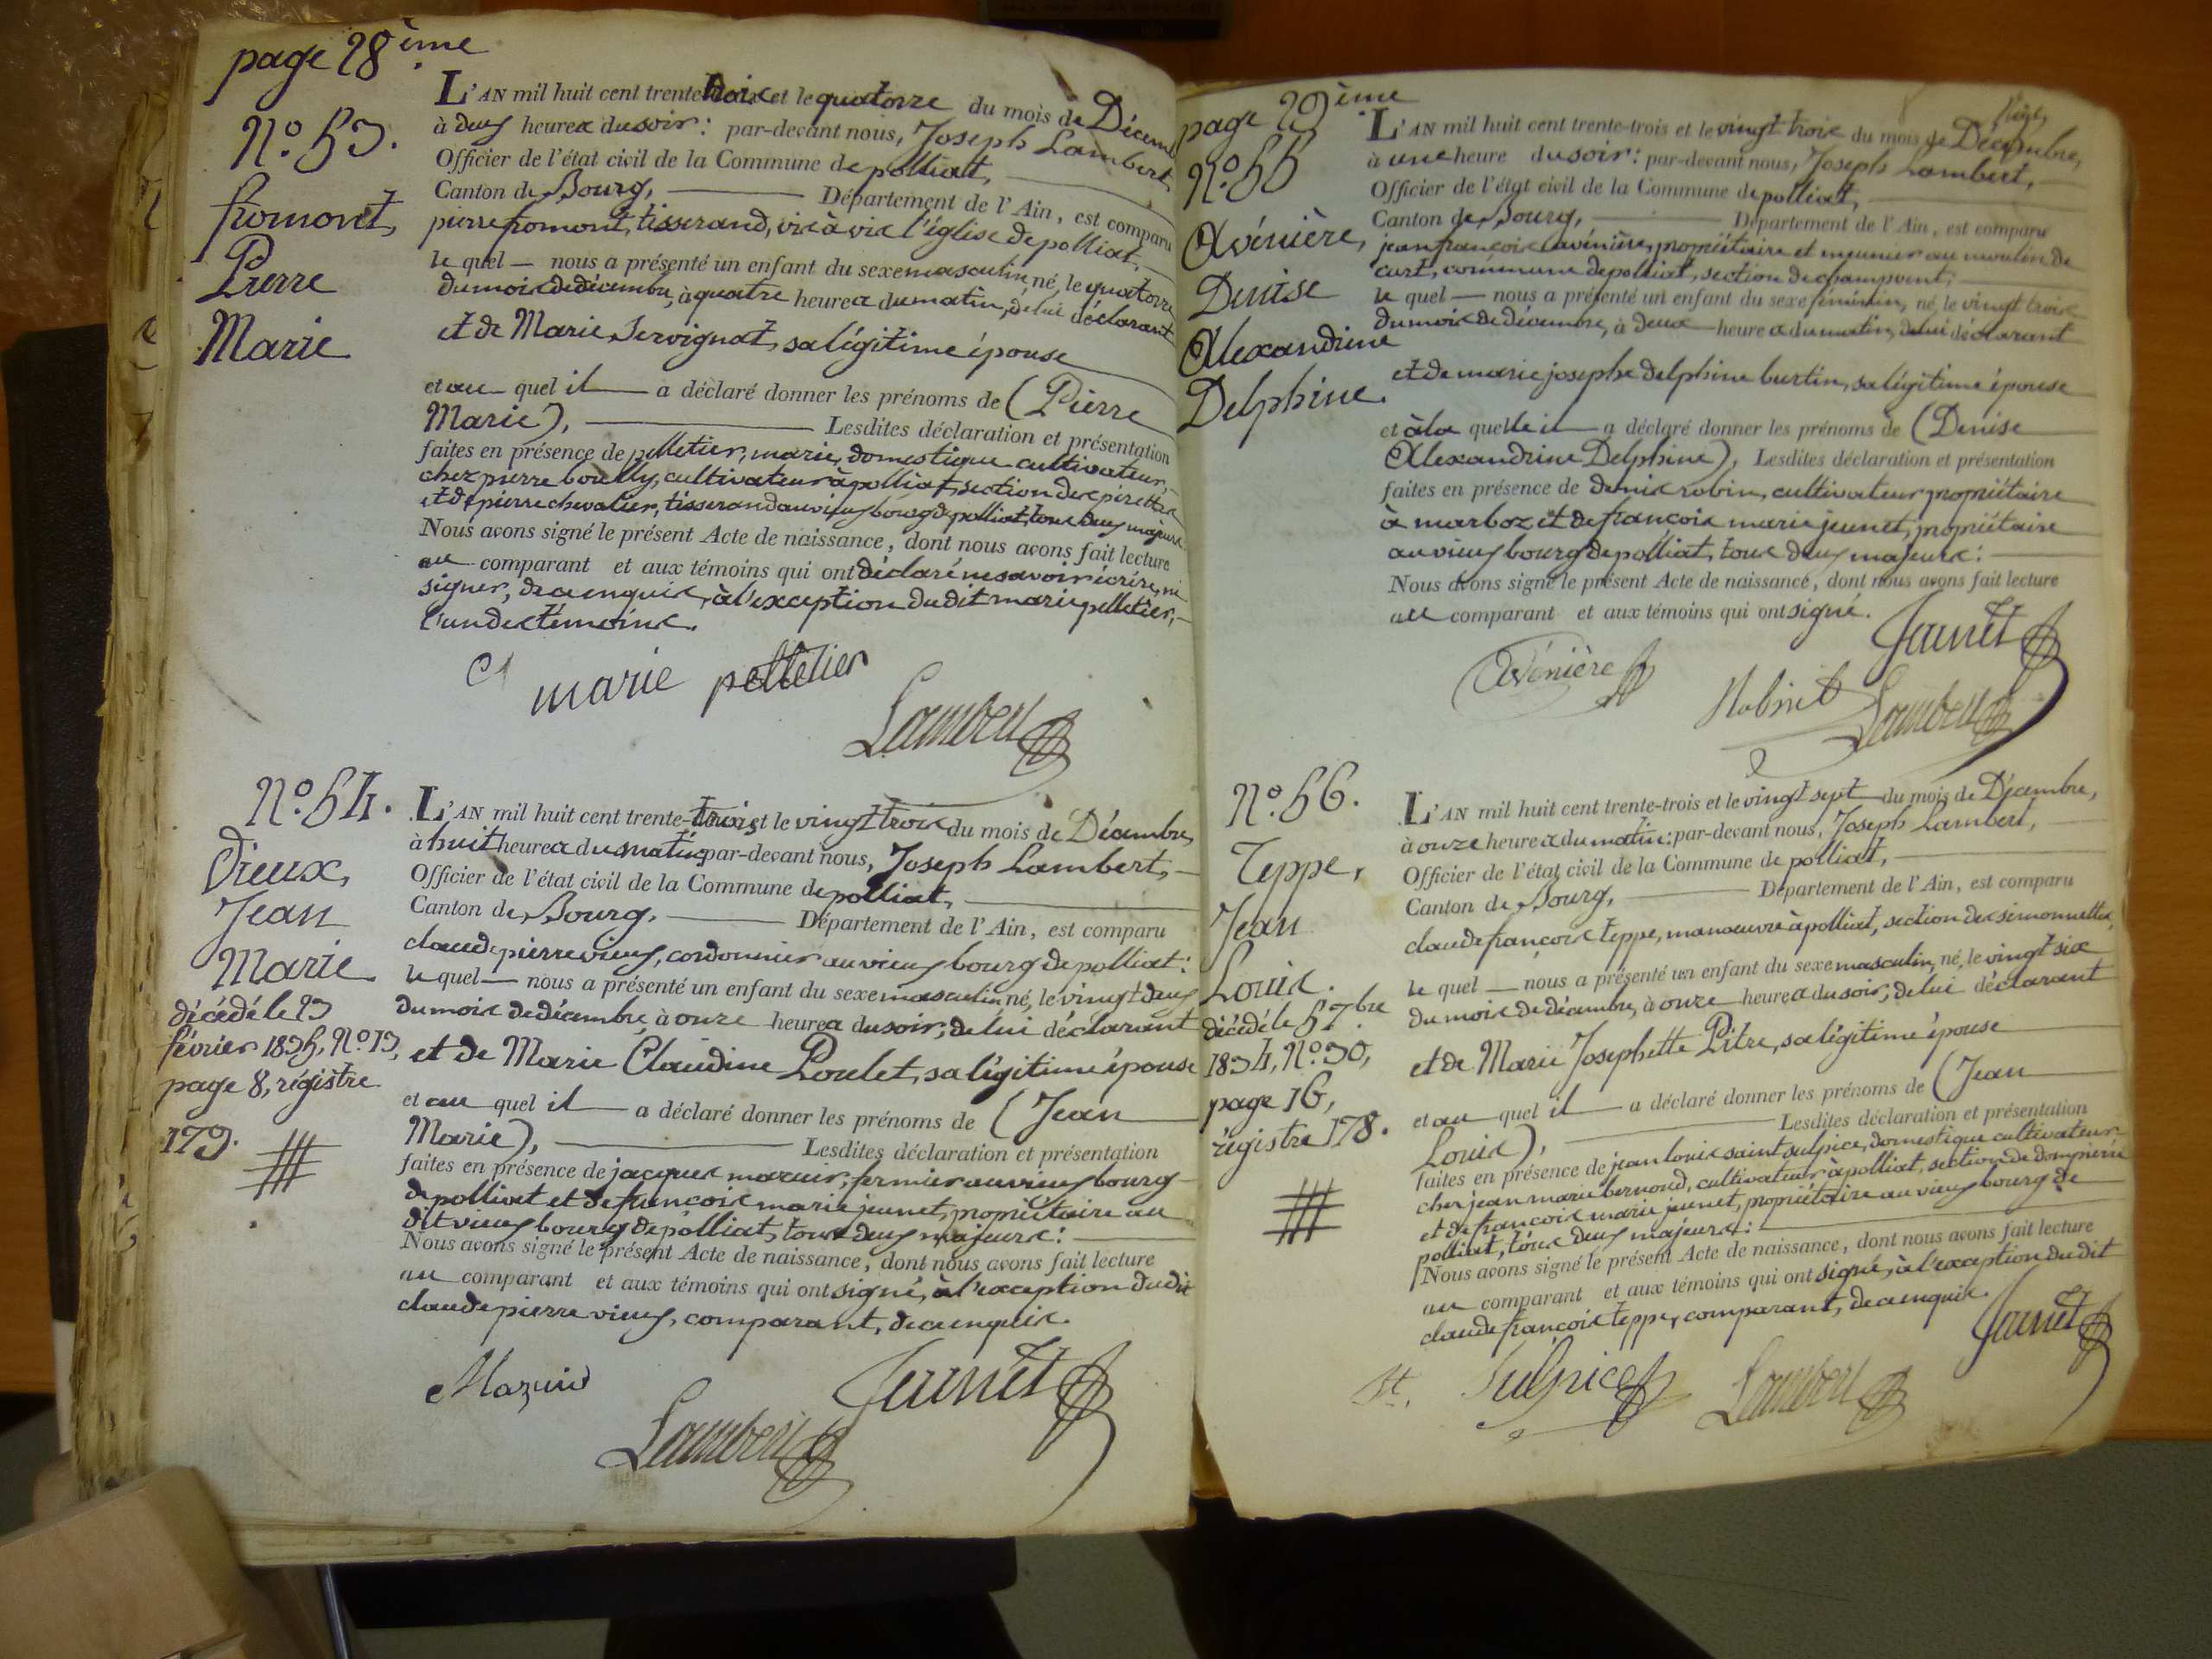 page 28ème
N.o 53.
fromont,
Pierre
Marie
L'AN mil huit cent trente-trois et le quatorze du mois de Décemb
à deux heures du soir: par-devant nous, Joseph Lambert,
Officier de l'état civil de la Commune de polliat,
Canton de Bourg, Département de l'Ain, est comparu
pierre fromont, tisserand, vis à vis l'église de polliat,
le quel nous a présenté un enfant du sexe masculin, né, le quatorze
du mois de décembre, à quatre heures du matin, de lui déclarant
et de Marie Servignat, sa légitime épouse
et au quel il a déclaré donner les prénoms de (Pierre
Marie), Lesdites déclaration et présentation
faites en présence de pelletier, marie, domestique cultivateur,
chez pierre bouilly, cultivateur à polliat, section des
et de pierre chevalier, tisserand au vieux bourg de polliat, tous deux majeurs
Nous avons signé le présent Acte de naissance, dont nous avons fait lecture
au comparant et aux témoins qui ont déclaré ne savoir écrire, ni
signer, de ce enquis, à l'exception du dit marie pelletier,
l'un des témoins.
marie pelletier
Lambert
N.o 54.
Vieux,
Jean
Marie
décédé le 23
février 1835, N.o 13,
page 8, régistre
179.
L'AN mil huit cent trente-trois et le vingt trois du mois de Décembre,
à huit heures du matin: par-devant nous, Joseph Lambert,
Officier de l'état civil de la Commune de polliat,
Canton de Bourg, Département de l'Ain, est comparu
claude pierre vieux, cordonnier au vieux bourg de polliat:
le quel nous a présenté un enfant du sexe masculin, né, le vingt deux
du mois de décembre, à onze heures du soir; de lui déclarant
et de Marie Claudine Poulet, sa légitime épouse
et au quel il a déclaré donner les prénoms de (Jean
Marie), Lesdites déclaration et présentation
faites en présence de jacques mazuir, fermier au vieux bourg
de polliat et de françois marie jeunet, propriétaire au
dit vieux bourg de polliat, tous deux majeurs:
Nous avons signé le présent Acte de naissance, dont nous avons fait lecture
au comparant et aux témoins qui ont signé, à l'exception du dit
claude pierre vieux, comparant, de ce enquis.
Mazuir
Jeunet
Lambert
page 29ème
N.o 55
Avénière,
Denise
Alexandrine
Delphine.
L'AN mil huit cent trente-trois et le vingt trois du mois de Décembre,
à une heure du soir: par-devant nous, Joseph Lambert,
Officier de l'état civil de la Commune de polliat,
Canton de Bourg, Département de l'Ain, est comparu
jean françois avénière, propriétaire et meunier au moulin de
curt, commune de polliat, section de champvent;
le quel nous a présenté un enfant du sexe féminin, né, le vingt trois
du mois de décembre, à deux heures du matin, de lui déclarant
et de marie josephe delphine burtin, sa légitime épouse
et à la quelle il a déclaré donner les prénoms de (Denise
Alexandrine Delphine), Lesdites déclaration et présentation
faites en présence de denis robin, cultivateur propriétaire
à marboz et de françois marie jeunet, propriétaire
au vieux bourg de polliat, tous deux majeurs:
Nous avons signé le présent Acte de naissance, dont nous avons fait lecture
au comparant et aux témoins qui ont signé.
Jeunet
Avénière
Lambert
N.o 56.
Teppe,
Jean
Louis.
décédé le 5 7.bre
1834, N.o 30,
page 16,
régistre 178.
L'AN mil huit cent trente-trois et le vingt sept du mois de Décembre,
à onze heures du matin: par-devant nous, Joseph Lambert,
Officier de l'état civil de la Commune de polliat,
Canton de Bourg, Département de l'Ain, est comparu
claude françois teppe, manoeuvre à polliat, section des simonnettes,
le quel nous a présenté un enfant du sexe masculin, né, le vingt six
du mois de décembre, à onze heures du soir; de lui déclarant
et de Marie Josephette Pitre, sa légitime épouse
et au quel il a déclaré donner les prénoms de (Jean
Louis), Lesdites déclaration et présentation
faites en présence de jean louis saint sulpice, domestique cultivateur
chez jean marie bernoud, cultivateur à polliat, section de dompierre
et de françois marie jeunet, propriétaire au vieux bourg de
polliat, tous deux majeurs:
Nous avons signé le présent Acte de naissance, dont nous avons fait lecture
au comparant et aux témoins qui ont signé, à l'exception du dit
claude françois teppe, comparant, de ce enquis.
Jeunet
St. Sulpice
Lambert